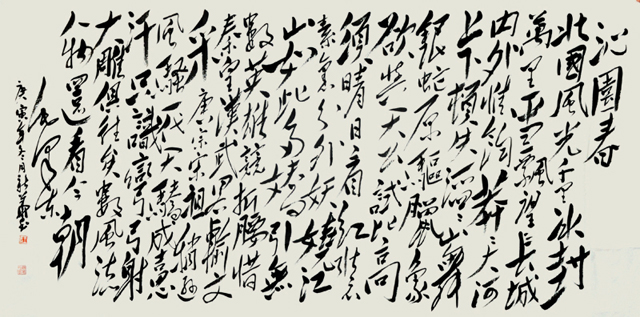 沁園春
北國風光千里冰封
萬里雪飄望長城
内外惟餘莽莽大河
上下頓失滔滔山舞
銀蛇原驅臘象
欲與天公試比高
須晴日看紅裝
素裹分外妖嬈江
山如此多嬌引無
數英雄競折腰惜
秦皇漢武略輸文
采唐宗宋祖稍遜
風騷一代天驕成吉思
汗只識彎弓射
大雕俱往矣數風流
人物還看今朝
毛澤東
庚寅年冬月